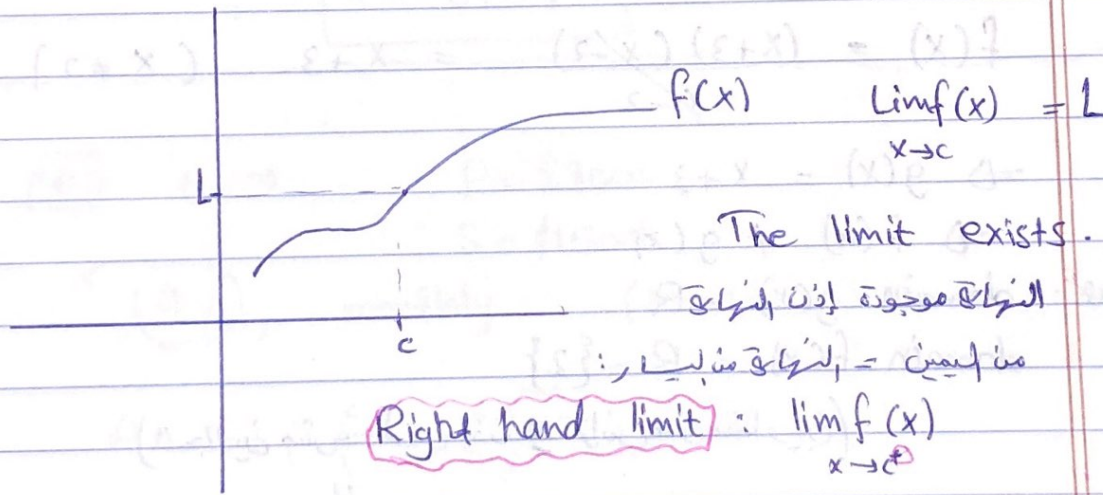 f(x) Lim f(x) = L
x→c
L
The limit exists.
النهاية موجودة إذن النهاية
c
من اليمين = النهاية من اليسار:
Right hand limit : lim f(x)
x→c⁺